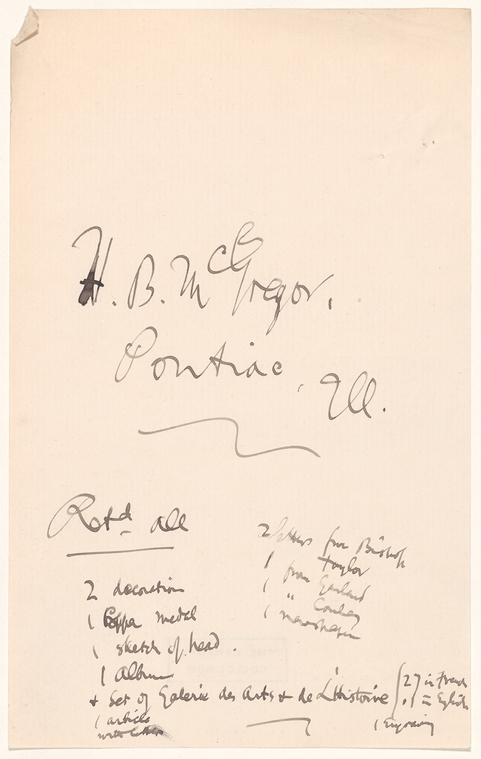 H. B. McGregor,
Pontiac, Ill.
Retd all
2 decoration
1 Copper medal
1 sketch of head.
1 Album
+ Set of Galerie des Arts + de L'Histoire
1 article
with letter
2 letters from Bishop
1 Taylor
1 from Garland
1 " Conley
1 newspaper
27 in French
1 = English
1 Engraving